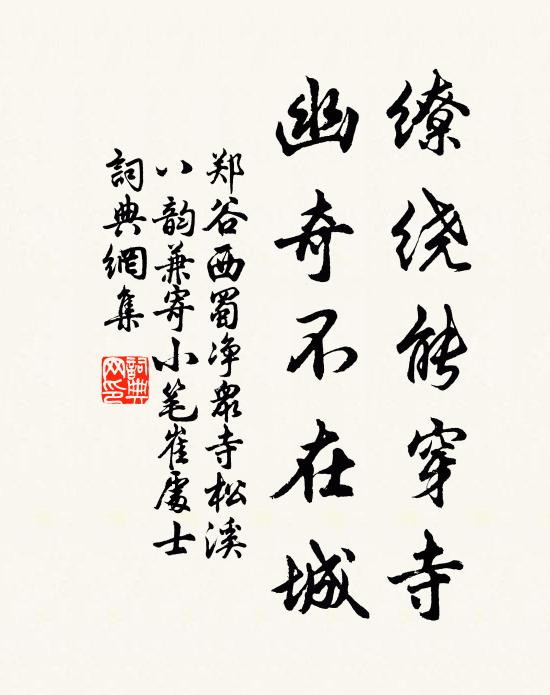 缭绕能穿寺
幽奇不在城
郑谷西蜀净众寺松溪
八韵兼寄小笔崔处士
詞典網集
詞典网印